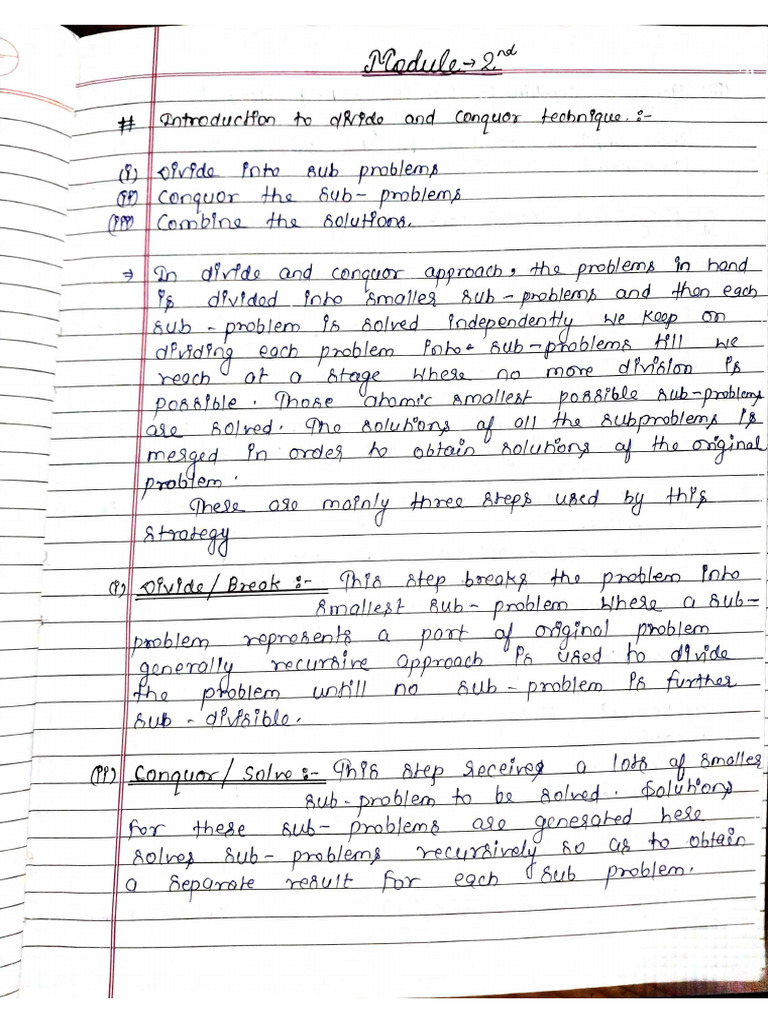 Module → 2nd
# Introduction to divide and conquor technique :-
(i) Divide into sub problems
(ii) Conquor the sub - problems
(iii) Combine the solutions.
→ In divide and conquor approach, the problems in hand
is divided into smaller sub - problems and then each
sub - problem is solved independently we keep on
dividing each problem into sub - problems till we
reach at a stage where no more division is
possible. Those atomic smallest possible sub - problems
are solved. The solutions of all the subproblems is
merged in order to obtain solutions of the original
problem.
These are mainly three steps used by this
strategy
(i) Divide / Break :- This step breaks the problem into
smallest sub - problem where a sub -
problem represents a part of original problem
generally recursive approach is used to divide
the problem untill no sub - problem is further
sub - divisible.
(ii) Conquor / Solve :- This step receives a lots of smaller
sub - problem to be solved. Solutions
for these sub - problems are generated here
solves sub - problems recursively so as to obtain
a separate result for each sub problem.